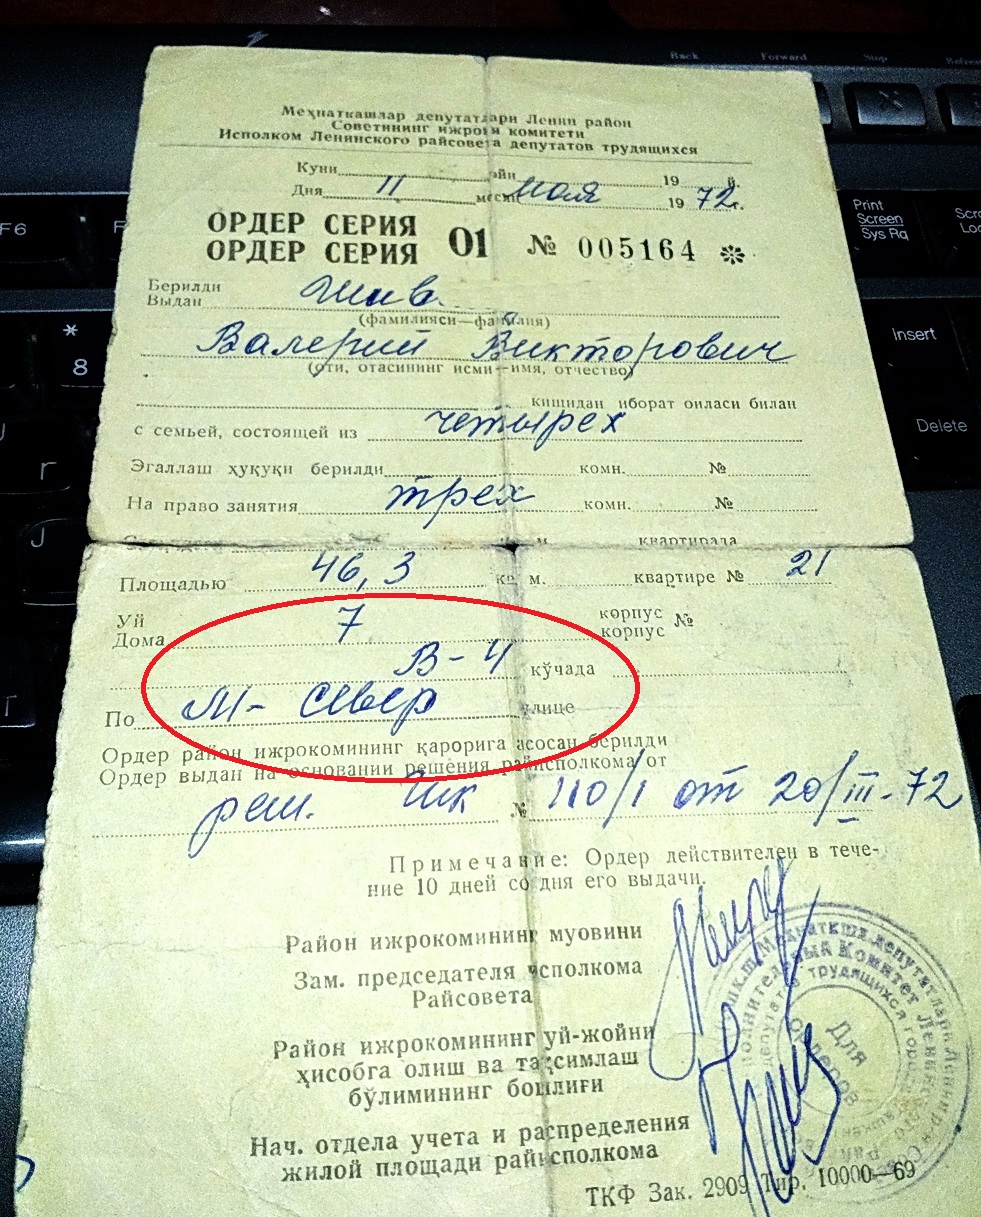 Back Forward Stop
Print
Screen
Sys Rq
F6
*
8
Insert
Delete
Меҳнаткашлар депутатлари Ленин район
Советининг ижроия комитети
Исполком Ленинского райсовета депутатов трудящихся
Куни ойи 19 й.
Дня 11 месяц июля 1972 г.
ОРДЕР СЕРИЯ
ОРДЕР СЕРИЯ 01 № 005164
Берилди
Выдан
(фамилияси—фамилия)
Валерий Викторович
(оти, отасининг исми—имя, отчество)
кишидан иборат оиласи билан
с семьей, состоящей из четырех
Эгаллаш ҳуқуқи берилди комн. №
На право занятия трех комн. №
м. квартирада
Площадью 46,3 кв. м. квартире № 21
Уй корпус
Дома 7 корпус №
В-4 кўчада
По М- Север улице
Ордер район ижрокомининг қарорига асосан берилди
Ордер выдан на основании решения райисполкома от
реш. ИК № 110/1 от 20/III-72
Примечание: Ордер действителен в тече-
ние 10 дней со дня его выдачи.
Район ижрокомининг муовини
Зам. председателя исполкома
Райсовета
Район ижрокомининг уй-жойни
ҳисобга олиш ва тақсимлаш
бўлимининг бошлиғи
Нач. отдела учета и распределения
жилой площади райисполкома
Для
ордеров
ТКФ Зак. 2909 Тир. 10000—69